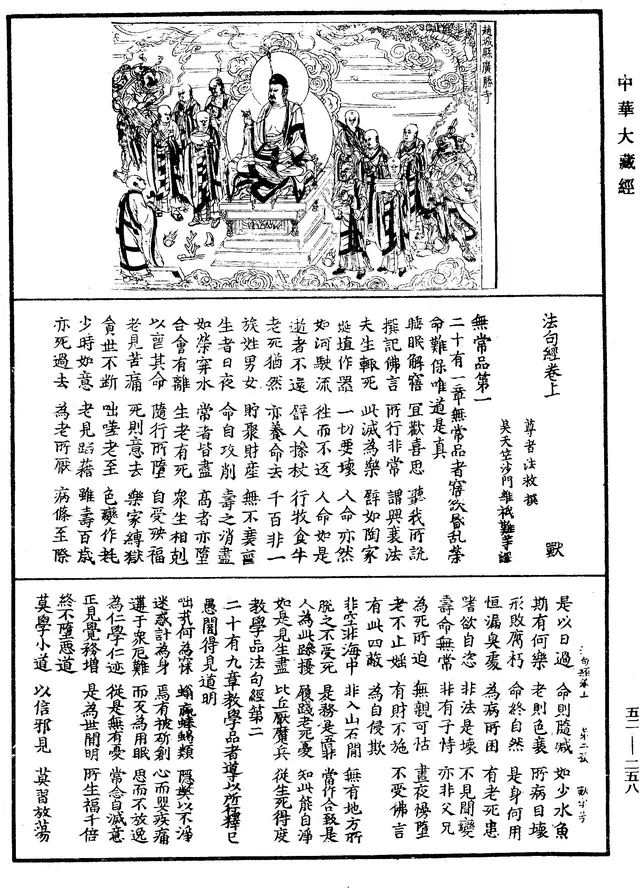 中華大藏經
趙城縣廣勝寺
法句經卷上 獸
尊者法救 撰
吳天竺沙門維祇難等譯
無常品第一
二十有一章無常品者寤欲昏亂榮
命難保唯道是真
睡眠解寤 宜歡喜思 聽我所說
撰記佛言 所行非常 謂興衰法
夫生輒死 此滅為樂 譬如陶家
埏埴作器 一切要壞 人命亦然
如河駛流 往而不返 人命如是
逝者不還 譬人操杖 行牧食牛
老死猶然 亦養命去 千百非一
族姓男女 貯聚財產 無不衰喪
生者日夜 命自攻削 壽之消盡
如穽水 常者皆盡 高者亦墮
合會有離 生老有死 衆生相剋
以喪其命 隨行所墮 自受殃福
老見苦痛 死則意去 樂家縛獄
貪世不斷 咄嗟老至 色變作耗
少時如意 老見蹈藉 雖壽百歲
亦死過去 為老所厭 病條至際
句經卷上 第二張 獸字号
是以日過 命則隨減 如少水魚
斯有何樂 老則色衰 所病自壞
形敗腐朽 命終自然 是身何用
恒漏臭處 為病所困 有老死患
嗜欲自恣 非法是增 不見聞變
壽命無常 非有子恃 亦非父兄
為死所迫 無親可怙 晝夜慢墮
老不止婬 有財不施 不受佛言
有此四蔽 為自侵欺
非空非海中 非入山石間 無有地方所
脫之不受死 是務是吾作 當作令致是
人為此躁擾 履踐老死憂 知此能自淨
如是見生盡 比丘厭魔兵 從生死得度
教學品法句經第二
二十有九章教學品者導以所行釋己
愚闇得見道明
咄哉何為寐 螉螺蜯蠹類 隱弊以不淨
迷惑計為身 焉有被斫創 心而嬰疾痛
遘于衆厄難 而反為用眠 思而不放逸
為仁學仁迹 從是無有憂 常念自滅意
正見學務增 是為世間明 所生福千倍
終不墮惡道
莫學小道 以信邪見 莫習放蕩
五二—二五八